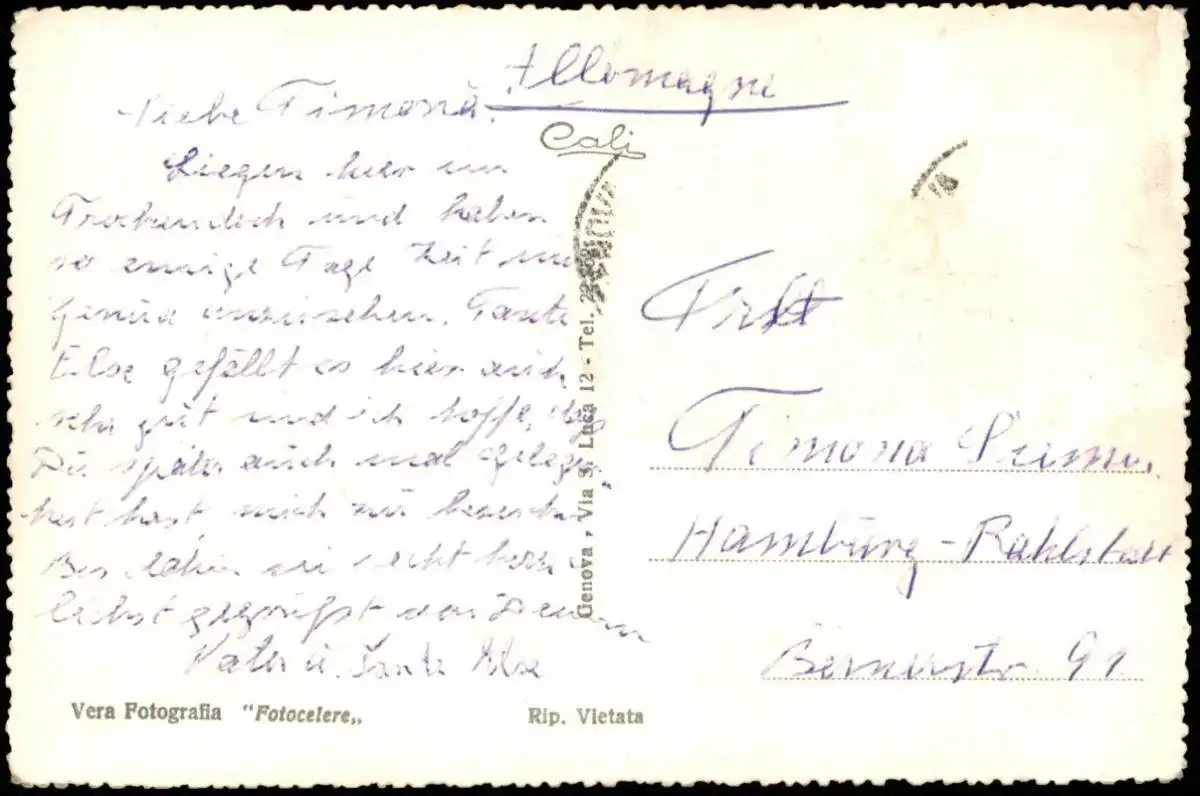 Allemagne
Liebe Timona.
Cali
Liegen hier im
Trockendock und haben
so einige Tage Zeit uns
Genua anzusehen. Tante
Else gefällt es hier auch
sehr gut und ich hoffe, dass
Du später auch mal Gelegen"
heit hast mich zu besuchen
Bis dahin sei recht herz
lichst gegrüßt von Deinem
Vater u. Tante Else
Vera Fotografia "Fotocelere„
Rip. Vietata
Genova, Via S. Luca 12 - Tel.
Timona
Hamburg-Rahlstedt
Bernerstr 91